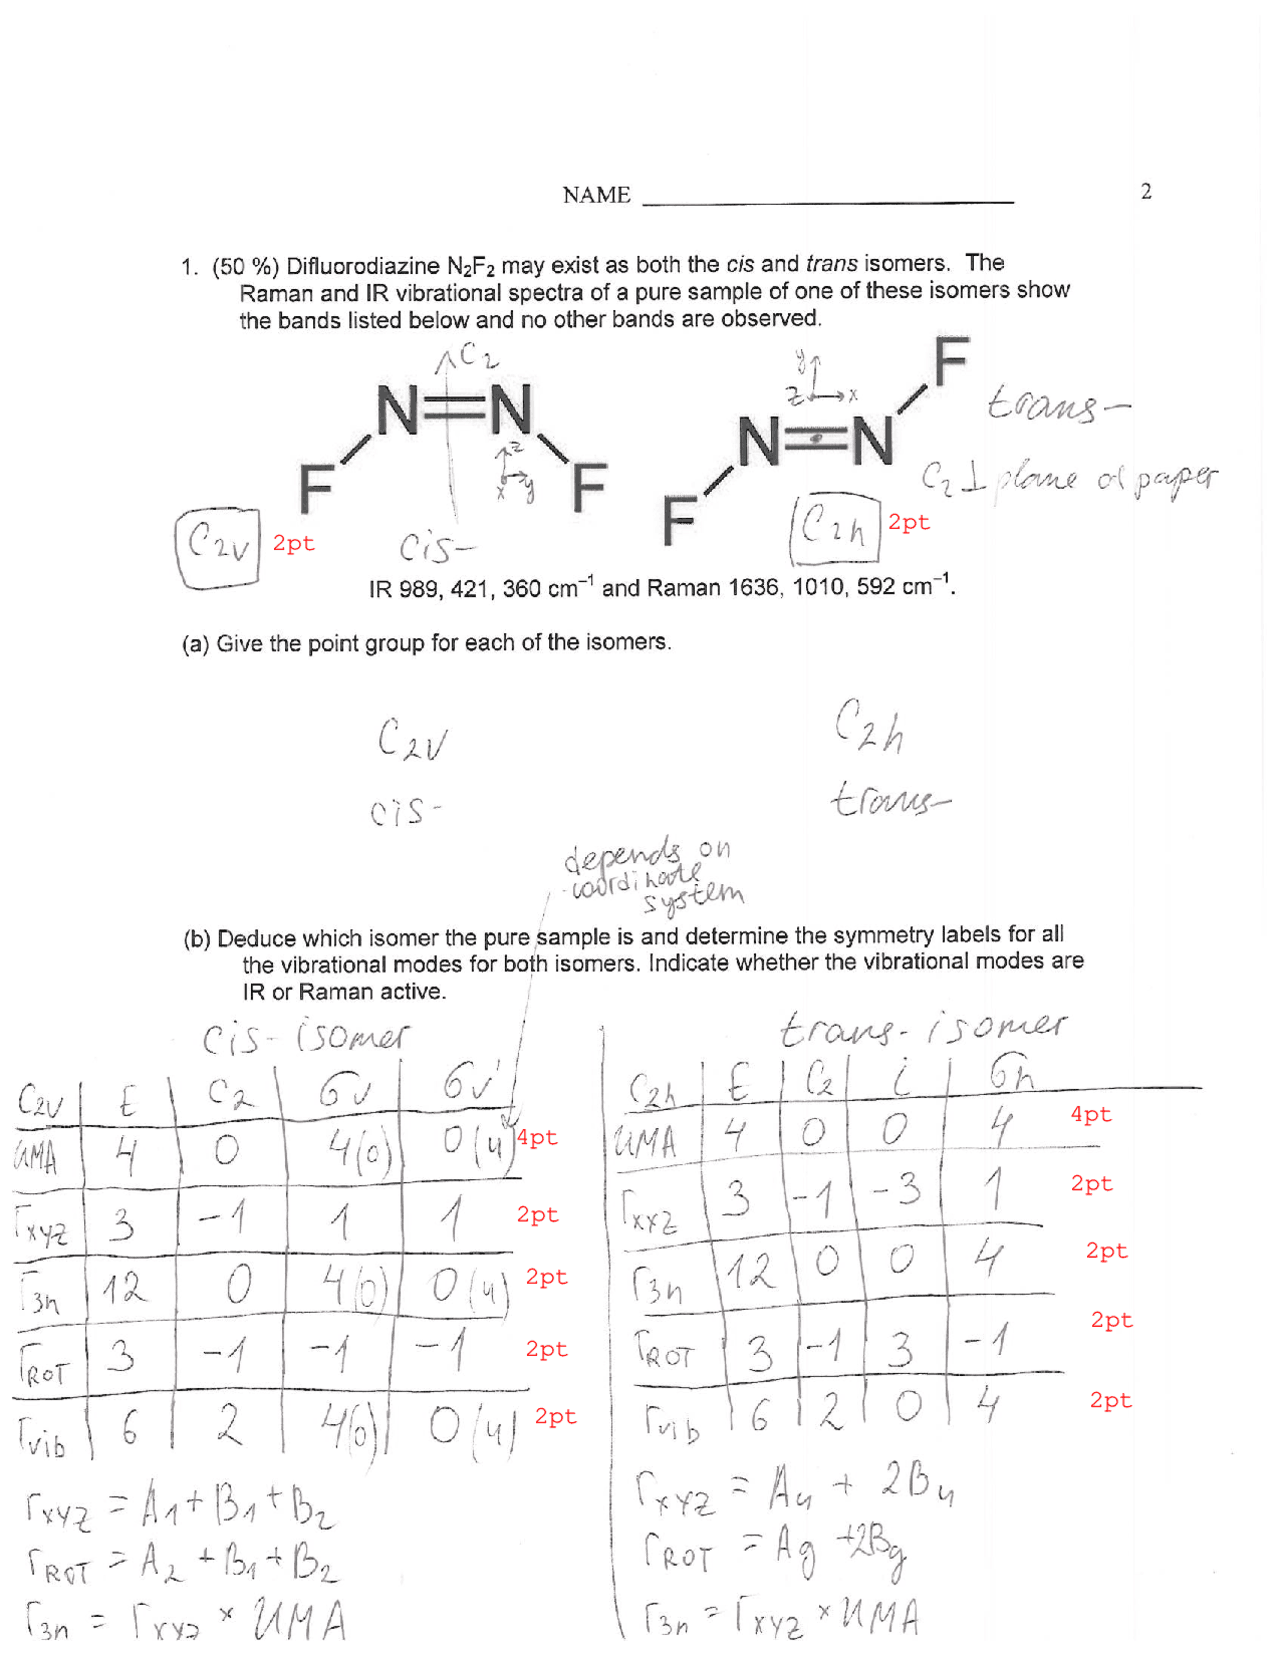 NAME
2
1. (50 %) Difluorodiazine N₂F₂ may exist as both the cis and trans isomers. The
Raman and IR vibrational spectra of a pure sample of one of these isomers show
the bands listed below and no other bands are observed.
C₂
N N
F F
z
x y
C₂ᵥ 2pt
cis-
y
z x
F
N N
F
trans-
C₂ ⊥ plane of paper
C₂ₕ 2pt
IR 989, 421, 360 cm⁻¹ and Raman 1636, 1010, 592 cm⁻¹.
(a) Give the point group for each of the isomers.
C₂ᵥ C₂ₕ
cis- trans-
depends on
coordinate
system
(b) Deduce which isomer the pure sample is and determine the symmetry labels for all
the vibrational modes for both isomers. Indicate whether the vibrational modes are
IR or Raman active.
cis-isomer
C₂ᵥ E C₂ σᵥ σᵥ'
UMA 4 0 4(0) 0(4) 4pt
Γxyz 3 -1 1 1 2pt
Γ3n 12 0 4(0) 0(4) 2pt
ΓROT 3 -1 -1 -1 2pt
Γvib 6 2 4(0) 0(4) 2pt
Γxyz = A₁ + B₁ + B₂
ΓROT = A₂ + B₁ + B₂
Γ3n = Γxyz × UMA
trans-isomer
C₂ₕ E C₂ i σₕ
UMA 4 0 0 4 4pt
Γxxz 3 -1 -3 1 2pt
Γ3n 12 0 0 4 2pt
ΓROT 3 -1 3 -1 2pt
Γvib 6 2 0 4 2pt
Γxyz = Au + 2Bu
ΓROT = Ag + 2Bg
Γ3n = Γxyz × UMA